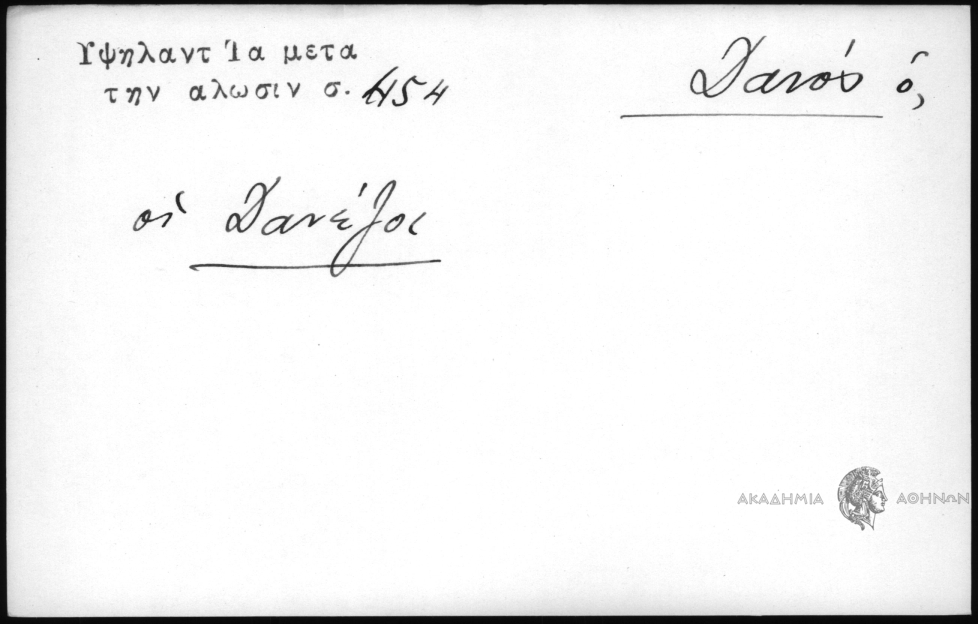 Υψηλαντ Τα μετα
την αλωσιν σ. 454
Δανός ὁ,
οἱ Δανέζοι
ΑΚΑΔΗΜΙΑ ΑΘΗΝΩΝ